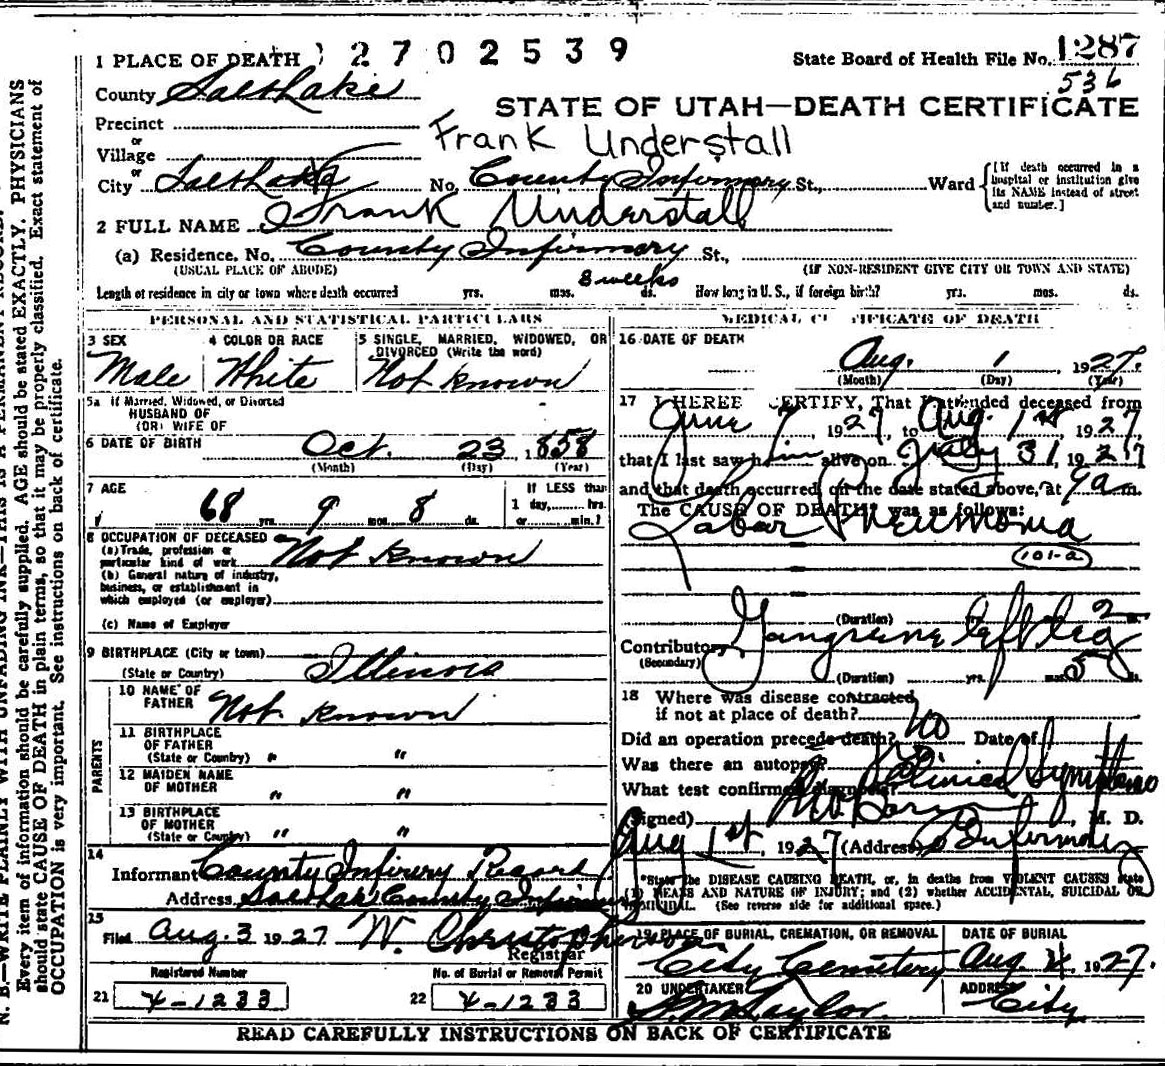 1 PLACE OF DEATH 2702539 State Board of Health File No. 1287
536
County Salt Lake
STATE OF UTAH—DEATH CERTIFICATE
Precinct
or
Frank Understall
Village
or
City Salt Lake No. County Infirmary St., Ward [If death occurred in a hospital or institution give its NAME instead of street and number.]
2 FULL NAME Frank Understall
(a) Residence. No. County Infirmary St.,
(USUAL PLACE OF ABODE) (IF NON-RESIDENT GIVE CITY OR TOWN AND STATE)
Length of residence in city or town where death occurred yrs. mos. 8 weeks ds. How long in U. S., if foreign birth? yrs. mos. ds.
PERSONAL AND STATISTICAL PARTICULARS
3 SEX
Male
4 COLOR OR RACE
White
5 SINGLE, MARRIED, WIDOWED, OR
DIVORCED (Write the word)
Not known
5a If Married, Widowed, or Divorced
HUSBAND OF
(OR) WIFE OF
6 DATE OF BIRTH Oct. 23 1858
(Month) (Day) (Year)
7 AGE
68 yrs. 9 mos. 8 ds.
If LESS than
1 day,......hrs.
or......min.?
8 OCCUPATION OF DECEASED
(a) Trade, profession or
particular kind of work Not known
(b) General nature of industry,
business, or establishment in
which employed (or employer)
(c) Name of Employer
9 BIRTHPLACE (City or town)
(State or Country) Illinois
PARENTS
10 NAME OF
FATHER Not known
11 BIRTHPLACE
OF FATHER
(State or Country) " "
12 MAIDEN NAME
OF MOTHER " "
13 BIRTHPLACE
OF MOTHER
(State or Country) " "
14
Informant County Infirery Record
Address Salt Lake County Infirmary
15
Filed Aug. 3 1927 W. Christopherson
Registrar
Registered Number No. of Burial or Removal Permit
21 4-1233 22 4-1233
MEDICAL CERTIFICATE OF DEATH
16 DATE OF DEATH
Aug. 1 1927.
(Month) (Day) (Year)
17 I HEREBY CERTIFY, That I attended deceased from
June 7 1927, to Aug. 1st 1927,
that I last saw him alive on July 31, 1927
and that death occurred, on the date stated above, at 9 a m.
The CAUSE OF DEATH was as follows:
Lobar Pneumonia
101-a
(Duration) 2
Contributory Gangrene left leg
(Secondary)
(Duration) yrs. mos. 5 ds.
18 Where was disease contracted
if not at place of death?
Did an operation precede death? No Date of
Was there an autopsy?
What test confirmed diagnosis? Clinical Symptoms
(Signed) M. D.
Aug 1st, 1927 (Address) Infirmary
*State the DISEASE CAUSING DEATH, or, in deaths from VIOLENT CAUSES state
(1) MEANS AND NATURE OF INJURY; and (2) whether ACCIDENTAL, SUICIDAL OR
HOMICIDAL. (See reverse side for additional space.)
19 PLACE OF BURIAL, CREMATION, OR REMOVAL
City Cemetery
DATE OF BURIAL
Aug 4 1927.
20 UNDERTAKER
Taylor.
ADDRESS
City
READ CAREFULLY INSTRUCTIONS ON BACK OF CERTIFICATE
N. B.—WRITE PLAINLY WITH UNFADING INK—THIS IS A PERMANENT RECORD.
Every item of information should be carefully supplied. AGE should be stated EXACTLY. PHYSICIANS
should state CAUSE OF DEATH in plain terms, so that it may be properly classified. Exact statement of
OCCUPATION is very important. See instructions on back of certificate.